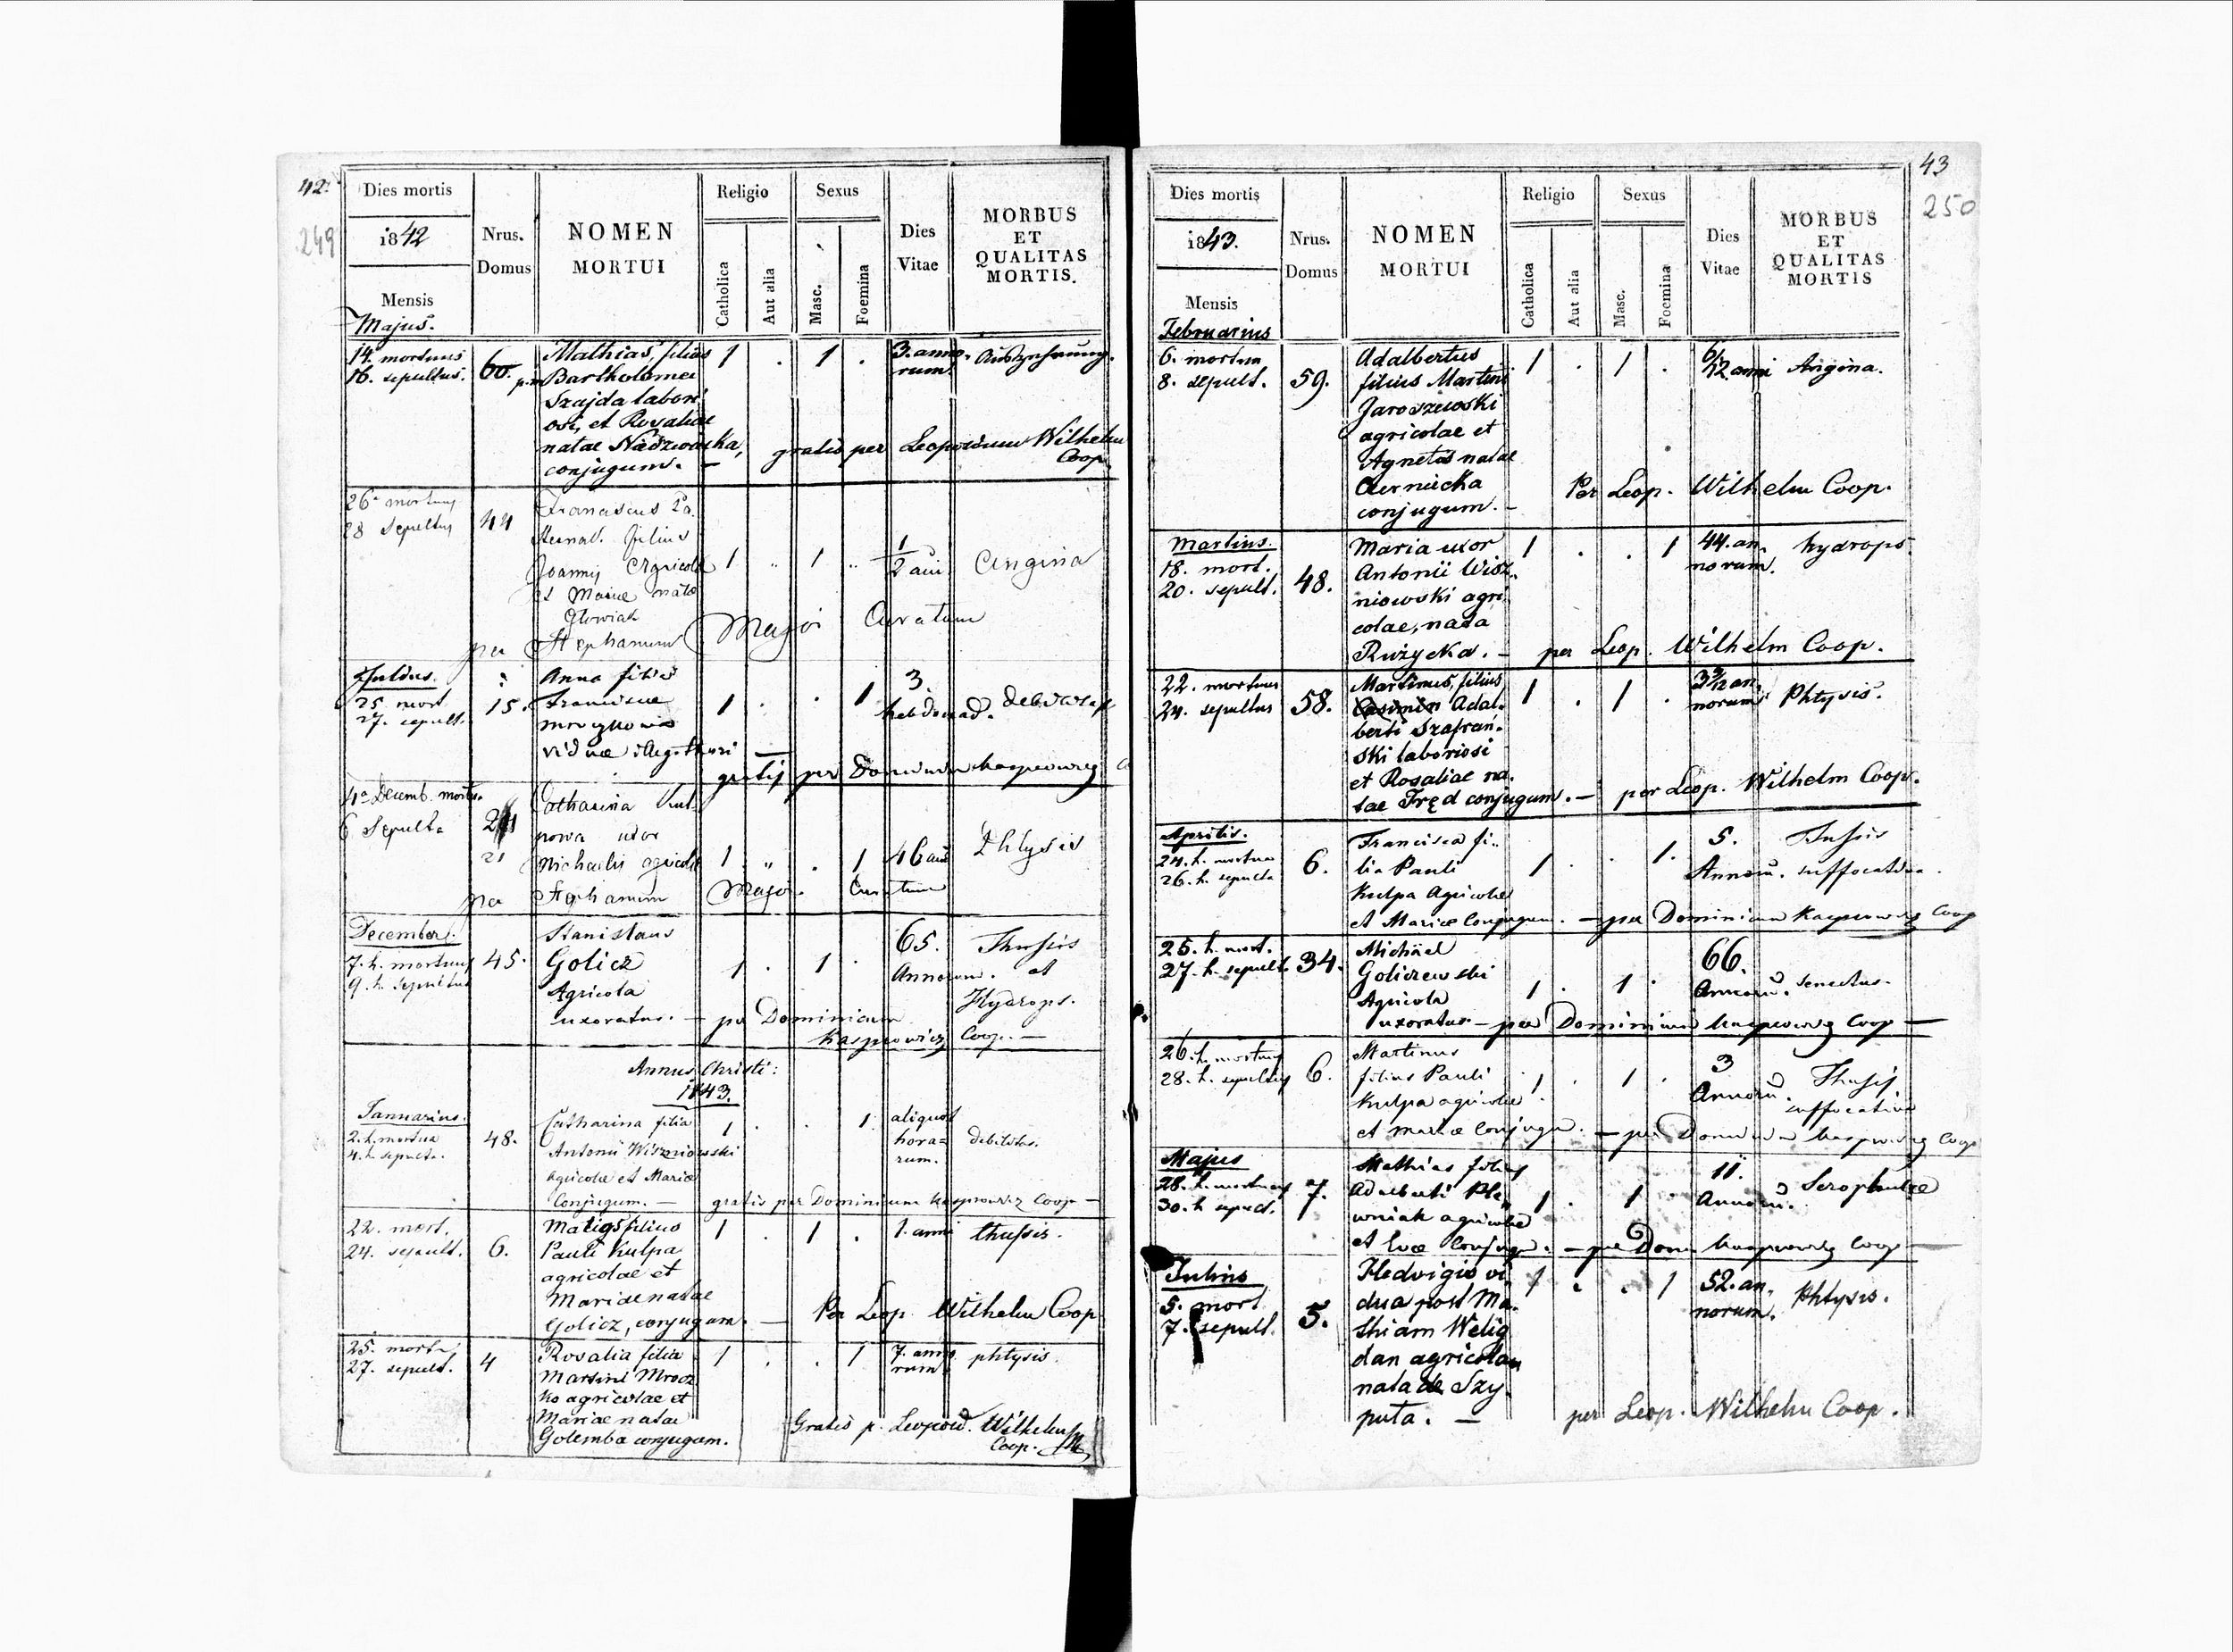 42.
249
Dies mortis
1842
Mensis
Majus.
Nrus.
Domus
NOMEN
MORTUI
Religio
Catholica
Aut alia
Sexus
Masc.
Foemina
Dies
Vitae
MORBUS
ET
QUALITAS
MORTIS.
14. mortuus
16. sepultus.
60.
Mathias, filius
Bartholomei
Szajda labori
osi, et Rosaliae
natae
conjugum. —
1 . 1 .
3. anno-
rum.
Auszehrung.
gratis per Leopoldum Wilhelm
Coop
26 mortuus
28 sepultus
44
Franciscus
filius
Joannis Agricolae
et Mariae nata
Glowiak
1 " 1 "
1/2 ani
Angina
per Stephanum Magoi Curatum
Julius.
25. mort
27. sepult.
15.
Anna filia
Franciscae
viduae
1 . . 1
3.
hebdomad.
gratis per Dominicum Kasprowicz
4a Decemb. mortua
6 Sepulta
21
Catharina
uxor
Michaelis agricolae
1 " . 1
46 ani
Phtysis
per Stephanum Magoi Curatum
December.
7. h. mortuus
9. h. sepultus
45.
Stanislaus
Golicz
Agricola
uxoratus. —
1 . 1 .
65.
Annorum.
Thusis
et
Hydrops.
per Dominicum
Kasprowicz Coop. —
Annus Christi:
1843.
Januarius.
2. h. mortua
4. h. sepulta.
48.
Catharina filia
Antonii Wiszniowski
agricolae et Mariae
Conjugum. —
1 . . 1
aliquot
hora-
rum.
debilitas.
gratis per Dominicum Kasprowicz Coop —
22. mort.
24. sepult.
6.
Matias filius
Pauli Kulpa
agricolae et
Mariae natae
Golicz, conjugum. —
1 . 1 .
1. anni
thussis.
Per Leop. Wilhelm Coop
25. mort
27. sepult.
4
Rosalia filia
Martini Mrocz
ko agricolae et
Mariae natae
Golemba conjugum.
1 . . 1
7. anno
rum
phtysis.
Gratis p. Leopold. Wilhelm
Coop.
43
250
Dies mortis
1843.
Mensis
Februarius
Nrus.
Domus
NOMEN
MORTUI
Religio
Catholica
Aut alia
Sexus
Masc.
Foemina
Dies
Vitae
MORBUS
ET
QUALITAS
MORTIS
6. mortuu
8. sepult.
59.
Adalbertus
filius Martini
Jaroszewski
agricolae et
Agnetis natae
Czernicka
conjugum. —
1 . 1 .
6/12 anni
Angina.
Per Leop. Wilhelm Coop.
Martius.
18. mort.
20. sepult.
48.
Maria uxor
Antonii Wisz-
niowski agri
colae, nata
Ruzycka. —
1 . . 1
44. an-
norum.
hydrops.
per Leop. Wilhelm Coop.
22. mortuus
24. sepultus
58.
Martinus, filius
Adal-
berti Szafrań-
ski laboriosi
et Rosaliae na-
tae Fręd conjugum. —
1 . 1 .
an-
norum
Phtysis.
per Leop. Wilhelm Coop.
Aprilis.
24. h. mortua
26. h. sepulta
6.
Francisca fi-
lia Pauli
Kulpa Agricolae
et Mariae Conjugum. —
1 . . 1.
5.
Annorū.
Tussis
suffocativa.
per Dominicum Kasprowicz Coop
25. h. mort.
27. h. sepult.
34.
Michael
Goliczewski
Agricola
uxoratus —
1 . 1 .
66.
Annorū.
Senectus.
per Dominicum Kasprowicz Coop —
26. h. mortuus
28. h. sepultus
6.
Martinus
filius Pauli
Kulpa agricolae
et Mariae Conjugu. —
1 . 1 .
3
Annorū.
Thusis
suffocativa
per Dominicum Kasprowicz Coop
Majus
28. h. mortuus
30. h. sepult.
7.
Mathias filius
Adalberti
agricolae
et Evae Conjugu. —
1 . 1 .
11.
Annorū.
Scrophulae
per Dom Kasprowicz Coop —
Julius
5. mort.
7. sepult.
5.
Hedvigis vi-
dua post Ma-
thiam Welig
dan agricolam
nata de Szy-
puta. —
1 . . 1
52. an-
norum.
Phtysis.
per Leop. Wilhelm Coop.